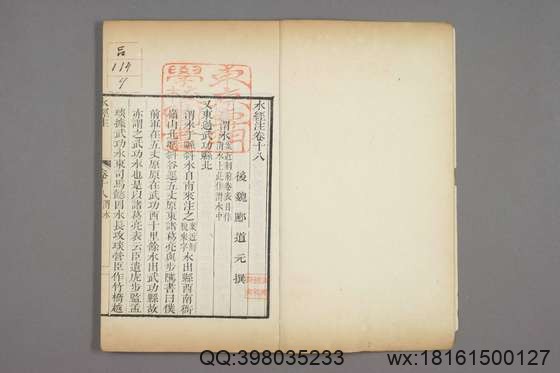 水經注卷十八
後魏酈道元撰
渭水案近刻前卷末目作渭水上此作渭水中
又東過武功縣北
渭水于縣斜水自南來注之案近刻脫來字水出縣西南衙
嶺山北歷斜谷逕五丈原東諸葛亮與步騭書曰僕
前軍在五丈原原在武功西十里餘水出武功縣故
亦謂之武功水也是以諸葛亮表云臣遣虎步監孟
琰據武功水東司馬懿因水長攻琰營臣作竹橋越
水經注
卷十八 渭水
呂
114
9
QQ:398035233
wx:18161500127